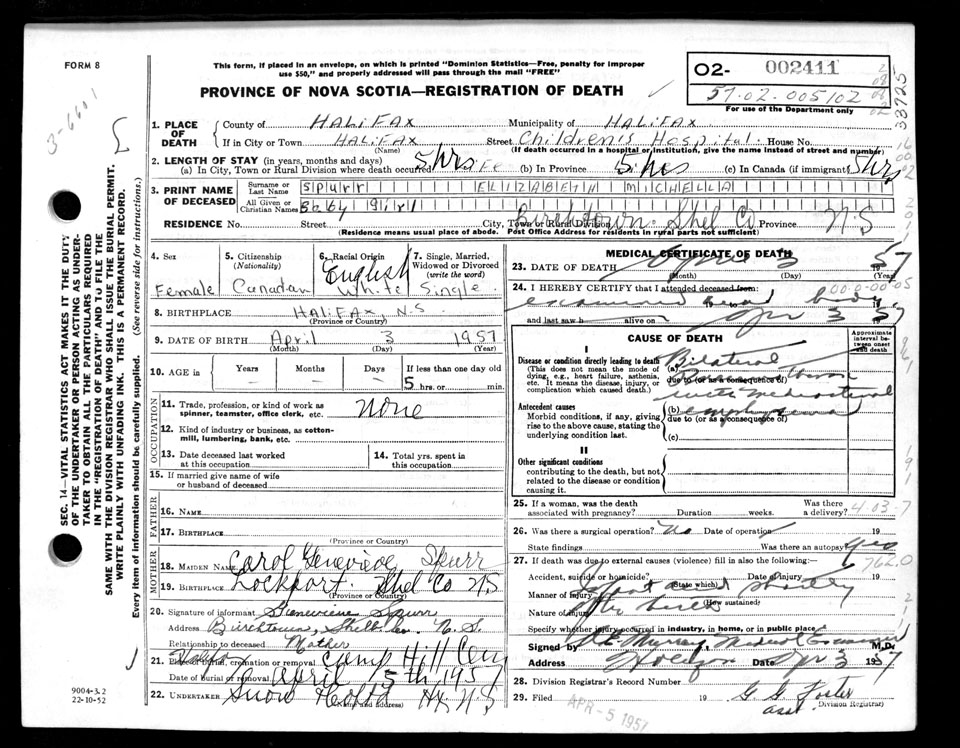 FORM 8
This form, if placed in an envelope, on which is printed "Dominion Statistics—Free, penalty for improper
use $50," and properly addressed will pass through the mail "FREE"
02- 002411
57-02-005102
For use of the Department only
38725
3-6601
PROVINCE OF NOVA SCOTIA—REGISTRATION OF DEATH
1. PLACE OF DEATH
County of HALIFAX Municipality of HALIFAX
If in City or Town HALIFAX Street Children's Hospital House No.
(Name) (If death occurred in a hospital or institution, give the name instead of street and number)
2. LENGTH OF STAY (in years, months and days)
(a) In City, Town or Rural Division where death occurred 5 hrs (b) In Province 5 hrs (c) In Canada (if immigrant) 5 hrs
3. PRINT NAME OF DECEASED
Surname or Last Name Spurr ELIZABETH MICHELLA
All Given or Christian Names Baby Girl
RESIDENCE No. Street City, Town or Rural Division Birchtown Shel Co Province N.S
(Residence means usual place of abode. Post Office Address for residents in rural parts not sufficient)
4. Sex Female
5. Citizenship (Nationality) Canadian
6. Racial Origin English White
7. Single, Married, Widowed or Divorced (write the word) Single
8. BIRTHPLACE HALIFAX, N.S.
(Province or Country)
9. DATE OF BIRTH April 3 1957
(Month) (Day) (Year)
10. AGE in Years Months Days If less than one day old
5 hrs. or min.
OCCUPATION
11. Trade, profession, or kind of work as
spinner, teamster, office clerk, etc. None
12. Kind of industry or business, as cotton-
mill, lumbering, bank, etc.
13. Date deceased last worked
at this occupation
14. Total yrs. spent in
this occupation
15. If married give name of wife
or husband of deceased
FATHER
16. NAME
17. BIRTHPLACE
(Province or Country)
MOTHER
18. MAIDEN NAME Carol Genevieve Spurr
19. BIRTHPLACE Lockport Shel Co N.S
(Province or Country)
20. Signature of informant Genevieve Spurr
Address Birchtown, Shelb. Co. N.S.
Relationship to deceased Mother
21. Place of burial, cremation or removal Camp Hill Cem
Date of burial or removal April 5th 1957
22. UNDERTAKER Snow Hx N.S
(Name and address)
9004-3.2
22-10-52
MEDICAL CERTIFICATE OF DEATH
23. DATE OF DEATH 3 1957
(Month) (Day) (Year)
24. I HEREBY CERTIFY that I attended deceased from:
examined dead body
and last saw h alive on Apr 3 57
CAUSE OF DEATH
Approximate interval between onset and death
I
Disease or condition directly leading to death
(This does not mean the mode of
dying, e.g., heart failure, asthenia,
etc. It means the disease, injury, or
complication which caused death.)
(a) Bilateral
due to (or as a consequence of)
with mediastinal
Antecedent causes
Morbid conditions, if any, giving
rise to the above cause, stating the
underlying condition last.
(b) emphysema
due to (or as a consequence of)
(c)
II
Other significant conditions
contributing to the death, but not
related to the disease or condition
causing it.
25. If a woman, was the death
associated with pregnancy? Duration weeks. Was there
a delivery?
26. Was there a surgical operation? No Date of operation 19
State findings Was there an autopsy? yes
27. If death was due to external causes (violence) fill in also the following:
762.0
Accident, suicide or homicide? Date of injury 19
(State which)
Manner of injury shortly
(How sustained)
Nature of injury after birth
Specify whether injury occurred in industry, in home, or in public place
Signed by Murray Medical Examiner M.D.
Address Halifax Date Apr 3 1957
28. Division Registrar's Record Number
29. Filed 19 G. G. Foster
asst Division Registrar)
APR - 5 1957
SEC. 14—VITAL STATISTICS ACT MAKES IT THE DUTY
OF THE UNDERTAKER OR PERSON ACTING AS UNDER-
TAKER TO OBTAIN ALL THE PARTICULARS REQUIRED
IN THE "REGISTRATION OF DEATH" AND TO FILE THE
SAME WITH THE DIVISION REGISTRAR WHO SHALL ISSUE THE BURIAL PERMIT.
WRITE PLAINLY WITH UNFADING INK. THIS IS A PERMANENT RECORD.
Every item of information should be carefully supplied. (See reverse side for instructions.)